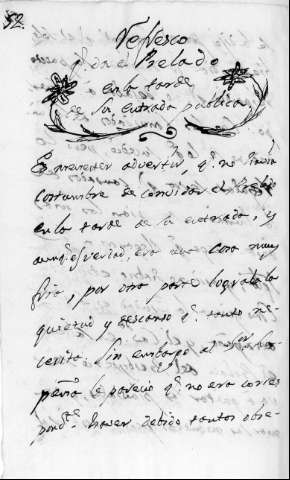 52.
Refresco
q.e da el Prelado
en la tarde
de su entrada publica
Es menester advertir, q.e no havia
costumbre de combidar el Pueblo
en la tarde de la entrada, y
aunq.e es verdad, era una cosa muy
fria, por otra parte lograba la
quietud y descanso q.e tanto ne-
cesita: Sin embargo al Señor
le parecio q.e no era corres-
pond.te haver debido tantos obse-